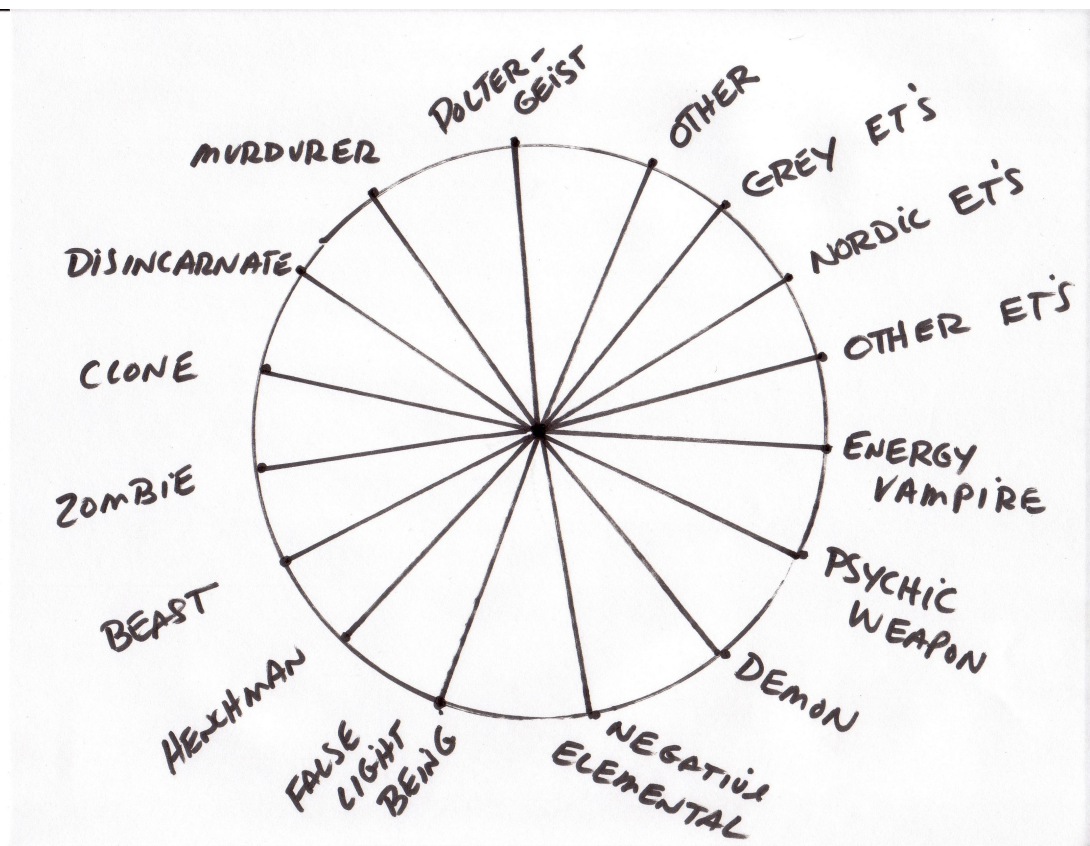 DOLTER-
GEIST
OTHER
GREY ET'S
NORDIC ET'S
OTHER ET'S
ENERGY
VAMPIRE
PSYCHIC
WEAPON
DEMON
NEGATIVE
ELEMENTAL
FALSE
LIGHT
BEING
HENCHMAN
BEAST
ZOMBIE
CLONE
DISINCARNATE
MURDURER